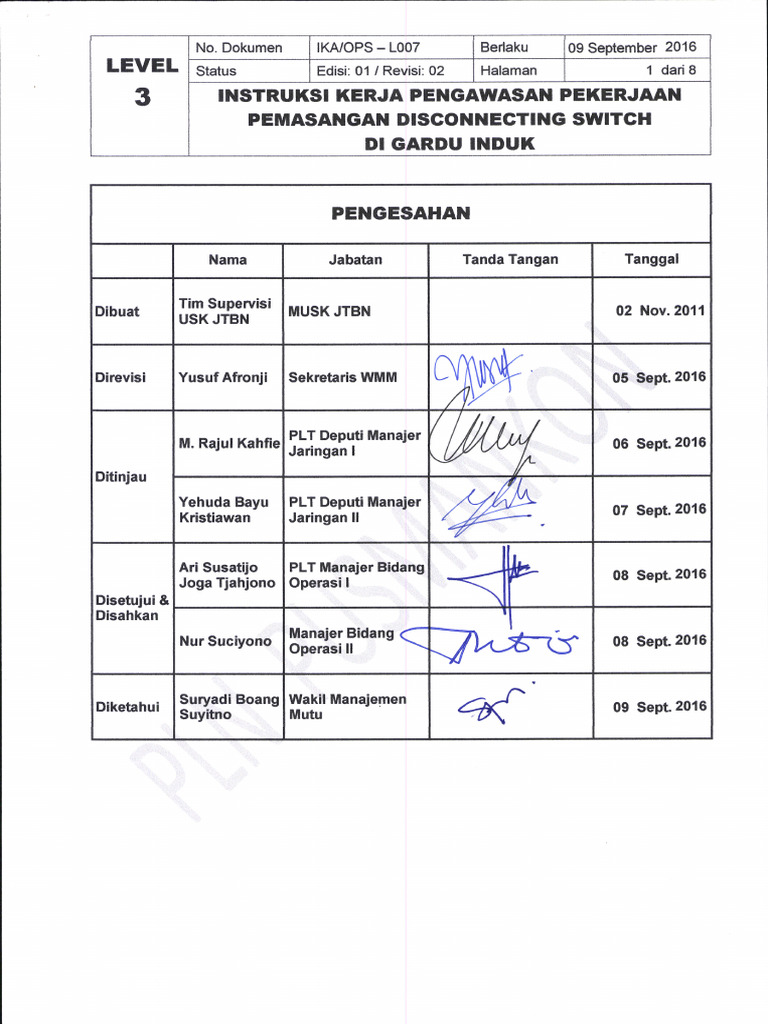 LEVEL
3
No. Dokumen IKA/OPS – L007 Berlaku 09 September 2016
Status Edisi: 01 / Revisi: 02 Halaman 1 dari 8
INSTRUKSI KERJA PENGAWASAN PEKERJAAN
PEMASANGAN DISCONNECTING SWITCH
DI GARDU INDUK
PENGESAHAN
Nama Jabatan Tanda Tangan Tanggal
Dibuat
Tim Supervisi
USK JTBN
MUSK JTBN
02 Nov. 2011
Direvisi
Yusuf Afronji
Sekretaris WMM
05 Sept. 2016
Ditinjau
M. Rajul Kahfie
PLT Deputi Manajer
Jaringan I
06 Sept. 2016
Yehuda Bayu
Kristiawan
PLT Deputi Manajer
Jaringan II
07 Sept. 2016
Disetujui &
Disahkan
Ari Susatijo
Joga Tjahjono
PLT Manajer Bidang
Operasi I
08 Sept. 2016
Nur Suciyono
Manajer Bidang
Operasi II
08 Sept. 2016
Diketahui
Suryadi Boang
Suyitno
Wakil Manajemen
Mutu
09 Sept. 2016
PLN PUSMANKON